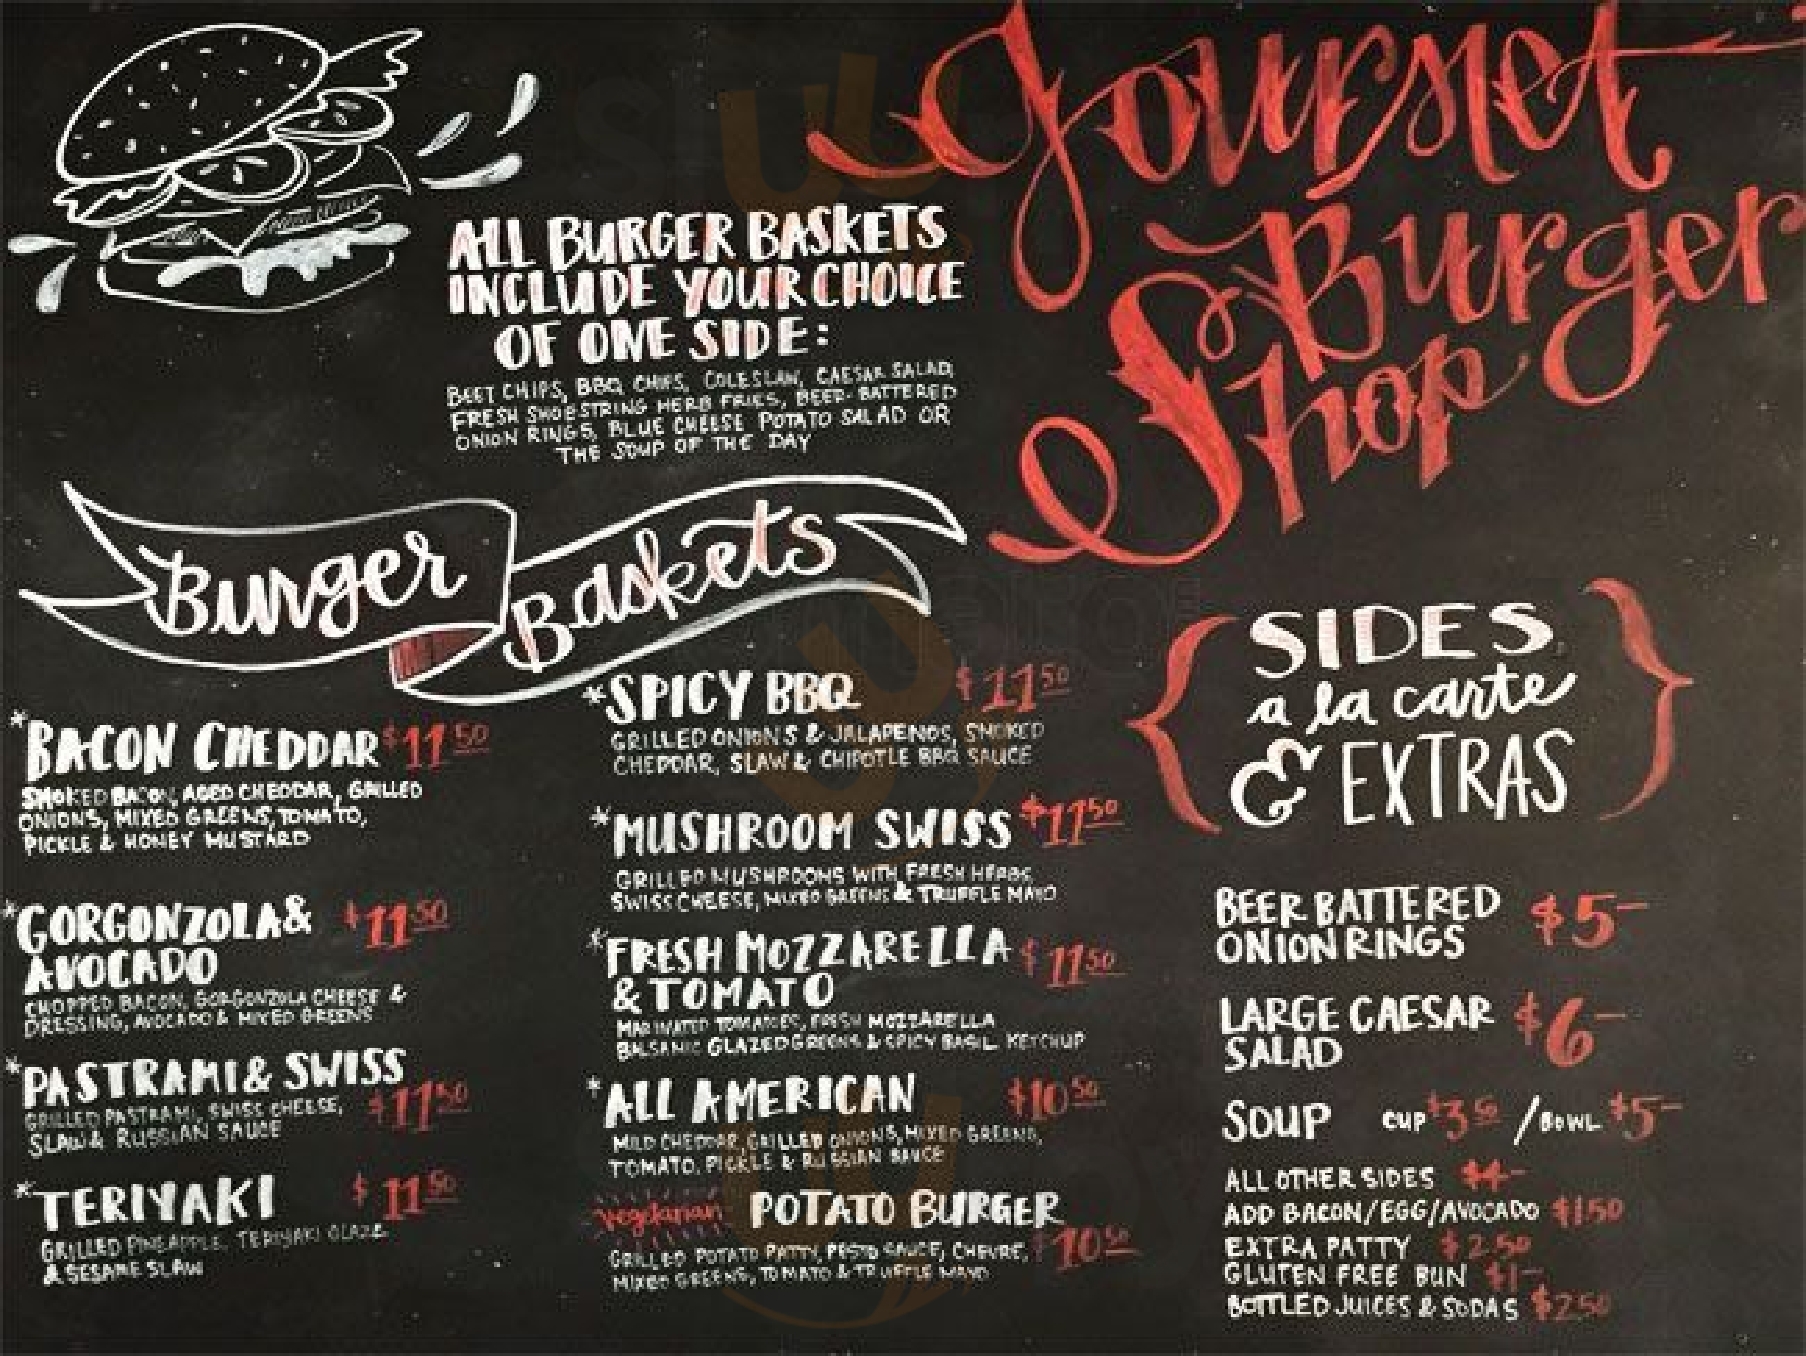 Gourmet
Burger
Shop
ALL BURGER BASKETS
INCLUDE YOUR CHOICE
OF ONE SIDE:
BEET CHIPS, BBQ CHIPS, COLESLAW, CAESAR SALAD,
FRESH SHOESTRING HERB FRIES, BEER-BATTERED
ONION RINGS, BLUE CHEESE POTATO SALAD OR
THE SOUP OF THE DAY
Burger Baskets
*BACON CHEDDAR $11.50
SMOKED BACON, AGED CHEDDAR, GRILLED
ONIONS, MIXED GREENS, TOMATO,
PICKLE & HONEY MUSTARD
*GORGONZOLA & $11.50
AVOCADO
CHOPPED BACON, GORGONZOLA CHEESE &
DRESSING, AVOCADO & MIXED GREENS
*PASTRAMI & SWISS
GRILLED PASTRAMI, SWISS CHEESE, $11.50
SLAW & RUSSIAN SAUCE
*TERIYAKI $11.50
GRILLED PINEAPPLE, TERIYAKI GLAZE
& SESAME SLAW
*SPICY BBQ $11.50
GRILLED ONIONS & JALAPENOS, SMOKED
CHEDDAR, SLAW & CHIPOTLE BBQ SAUCE
*MUSHROOM SWISS $11.50
GRILLED MUSHROOMS WITH FRESH HERBS,
SWISS CHEESE, MIXED GREENS & TRUFFLE MAYO
*FRESH MOZZARELLA $11.50
& TOMATO
MARINATED TOMATOES, FRESH MOZZARELLA
BALSAMIC GLAZED GREENS & SPICY BASIL KETCHUP
*ALL AMERICAN $10.50
MILD CHEDDAR, GRILLED ONIONS, MIXED GREENS,
TOMATO, PICKLE & RUSSIAN SAUCE
vegetarian POTATO BURGER
GRILLED POTATO PATTY, PESTO SAUCE, CHEVRE, $10.50
MIXED GREENS, TOMATO & TRUFFLE MAYO
SIDES
a la carte
& EXTRAS
BEER BATTERED $5-
ONION RINGS
LARGE CAESAR $6-
SALAD
SOUP CUP $3.50 / BOWL $5-
ALL OTHER SIDES $4-
ADD BACON/EGG/AVOCADO $1.50
EXTRA PATTY $2.50
GLUTEN FREE BUN $1-
BOTTLED JUICES & SODAS $2.50